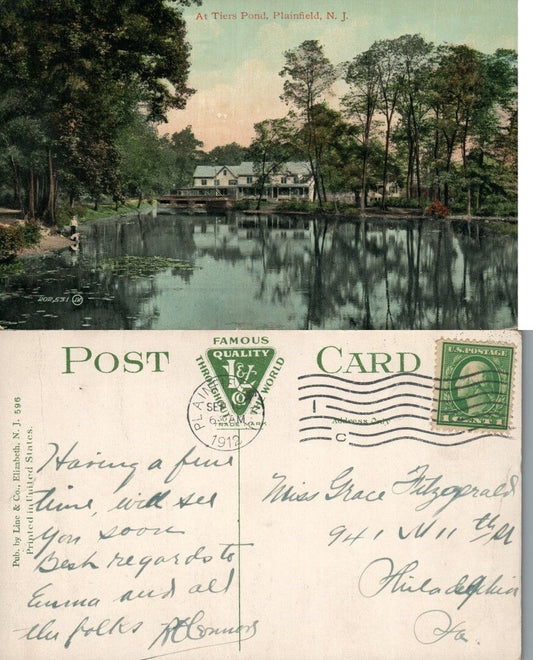 At Tiers Pond, Plainfield, N. J.
202,551
POST CARD
FAMOUS
QUALITY
THROUGHOUT THE WORLD
L & Co
TRADE MARK
PLAIN
SEP
6 30 AM
1912
1
C
Address Only
U.S. POSTAGE
1 CENT 1
Pub. by Line & Co., Elizabeth, N. J. 596
Printed in United States.
Having a fine
time, will see
you soon
Best regards to
Emma and all
the folks
Miss Grace Fitzgerald
941 N 11th St
Philadelphia
Pa.